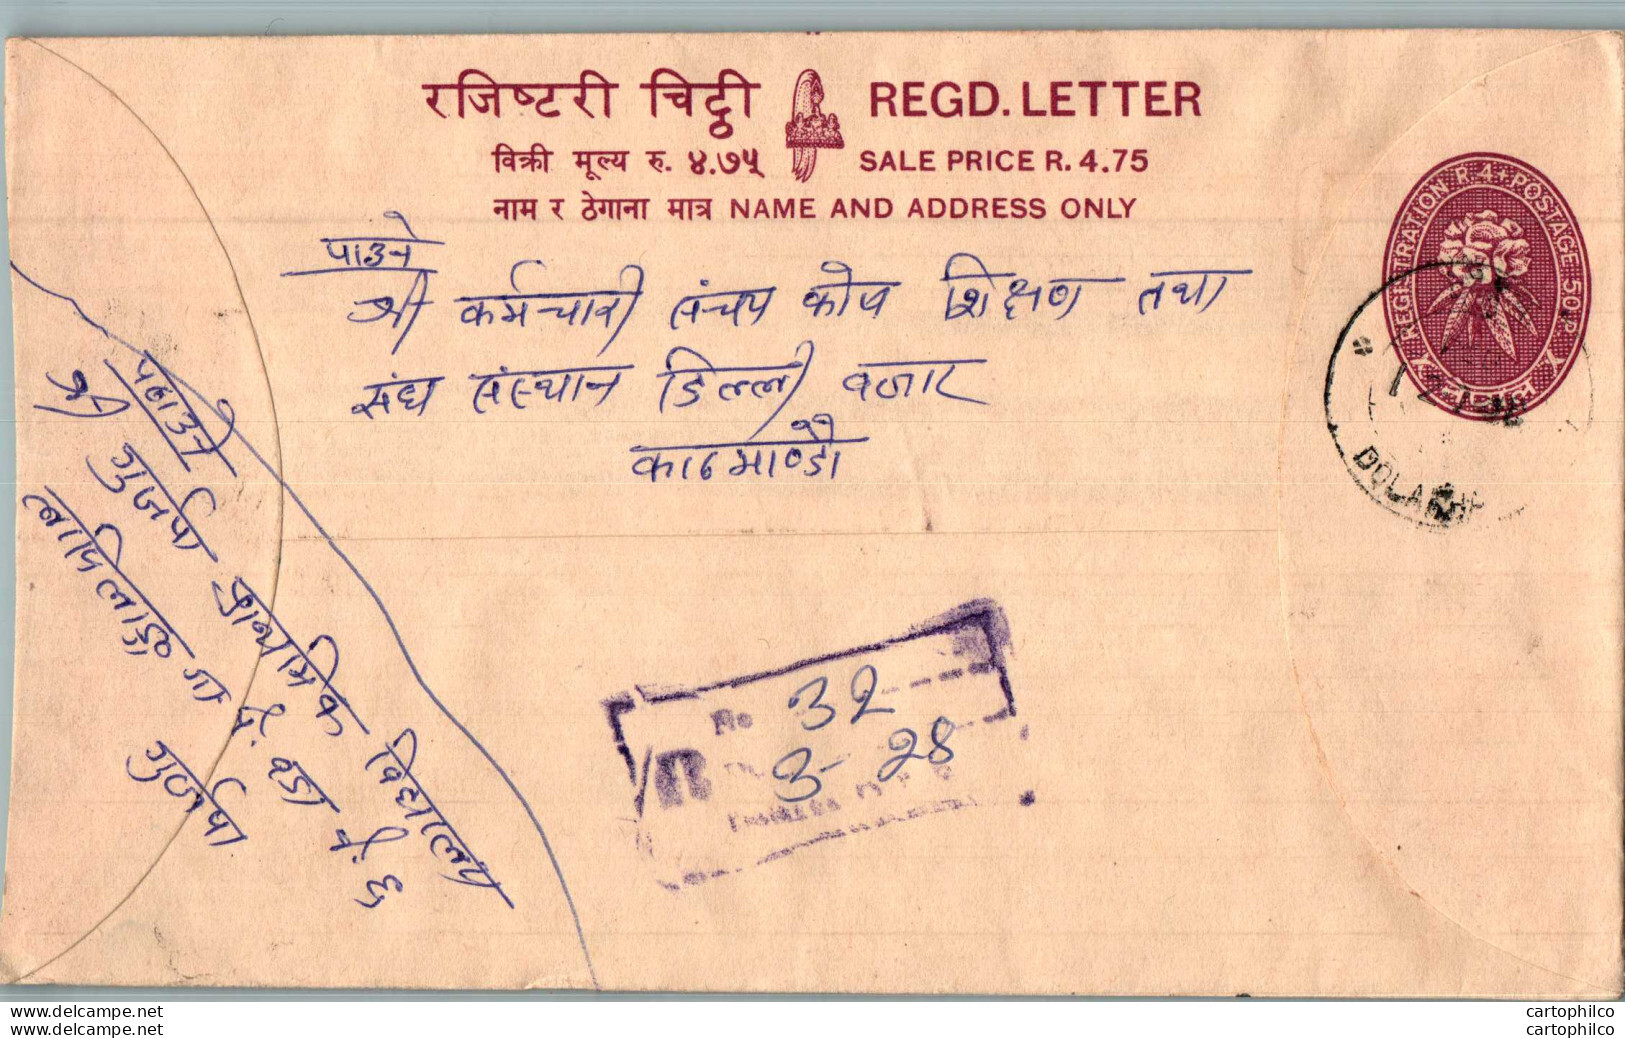 रजिष्टरी चिट्ठी REGD. LETTER
विक्री मूल्य रु. ४.७५ SALE PRICE R. 4.75
नाम र ठेगाना मात्र NAME AND ADDRESS ONLY
REGISTRATION R. 4 + POSTAGE 50 P.
पाउने
श्री कर्मचारी संचय कोष शिक्षण तथा
संघ संस्थान डिल्ली बजार
काठमाण्डौ
DOLAKHA
पठाउने
श्री गुर्जर्पा प्राथमिक विद्यालय
गा पं. वडा नं. ६
No 32
R
3-28
www.delcampe.net
www.delcampe.net
cartophilco
cartophilco